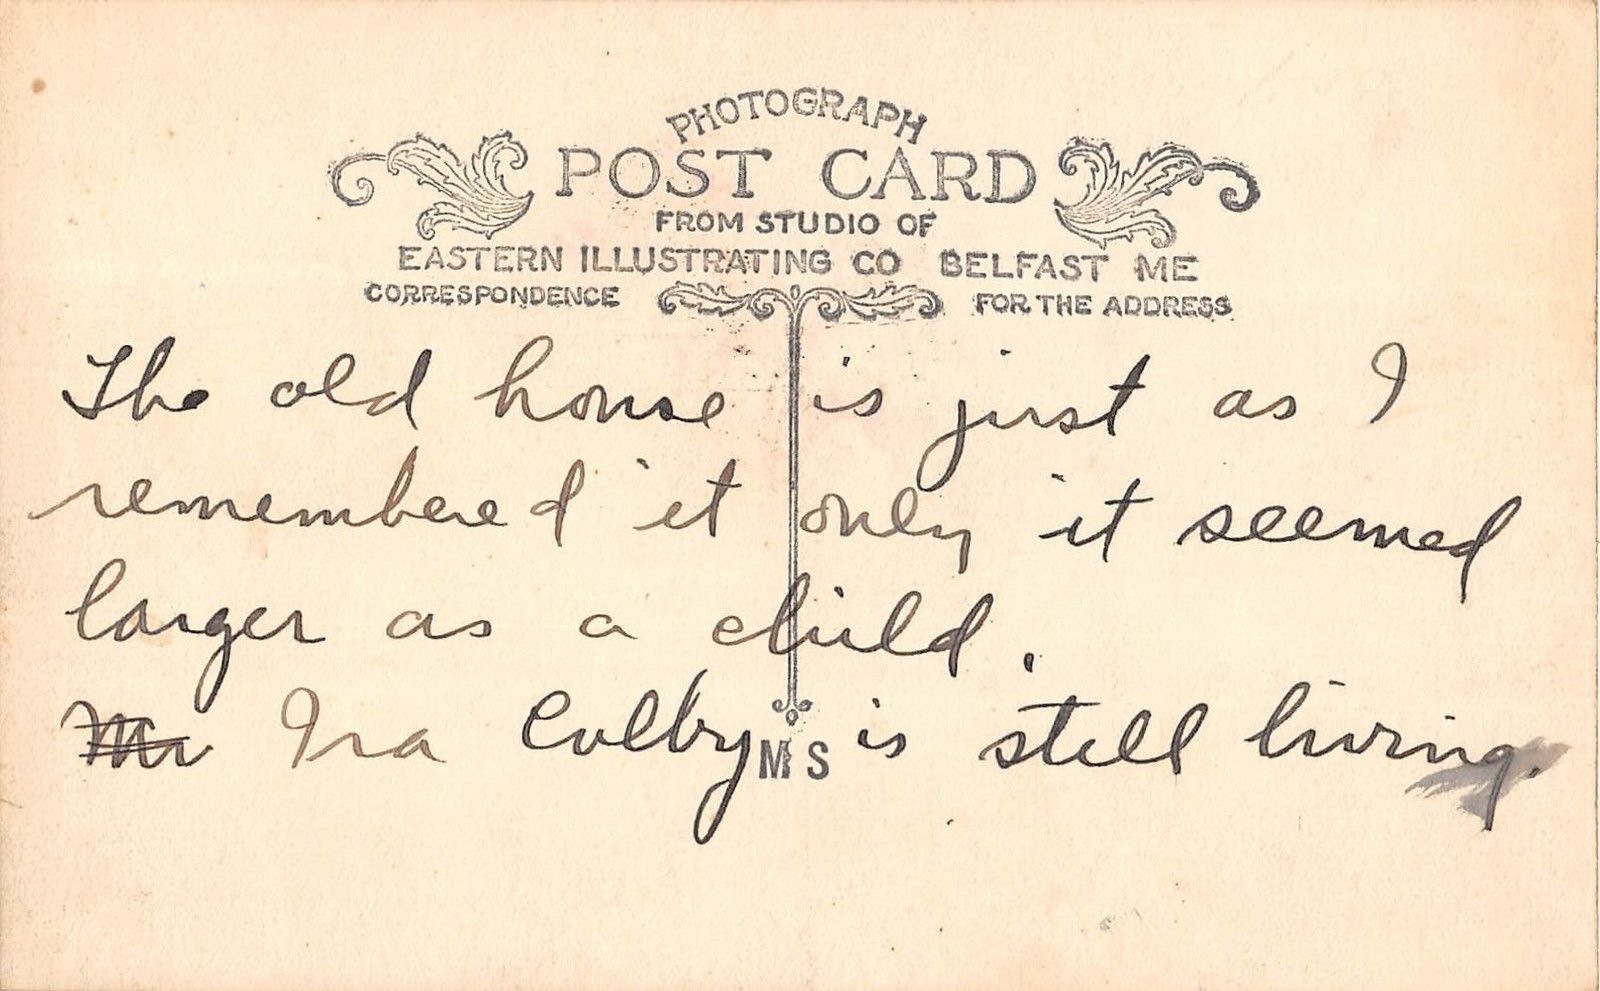 PHOTOGRAPH
POST CARD
FROM STUDIO OF
EASTERN ILLUSTRATING CO BELFAST ME
CORRESPONDENCE FOR THE ADDRESS
The old house is just as I
remembered it only it seemed
larger as a child.
Mr Ira Colby is still living.
M S